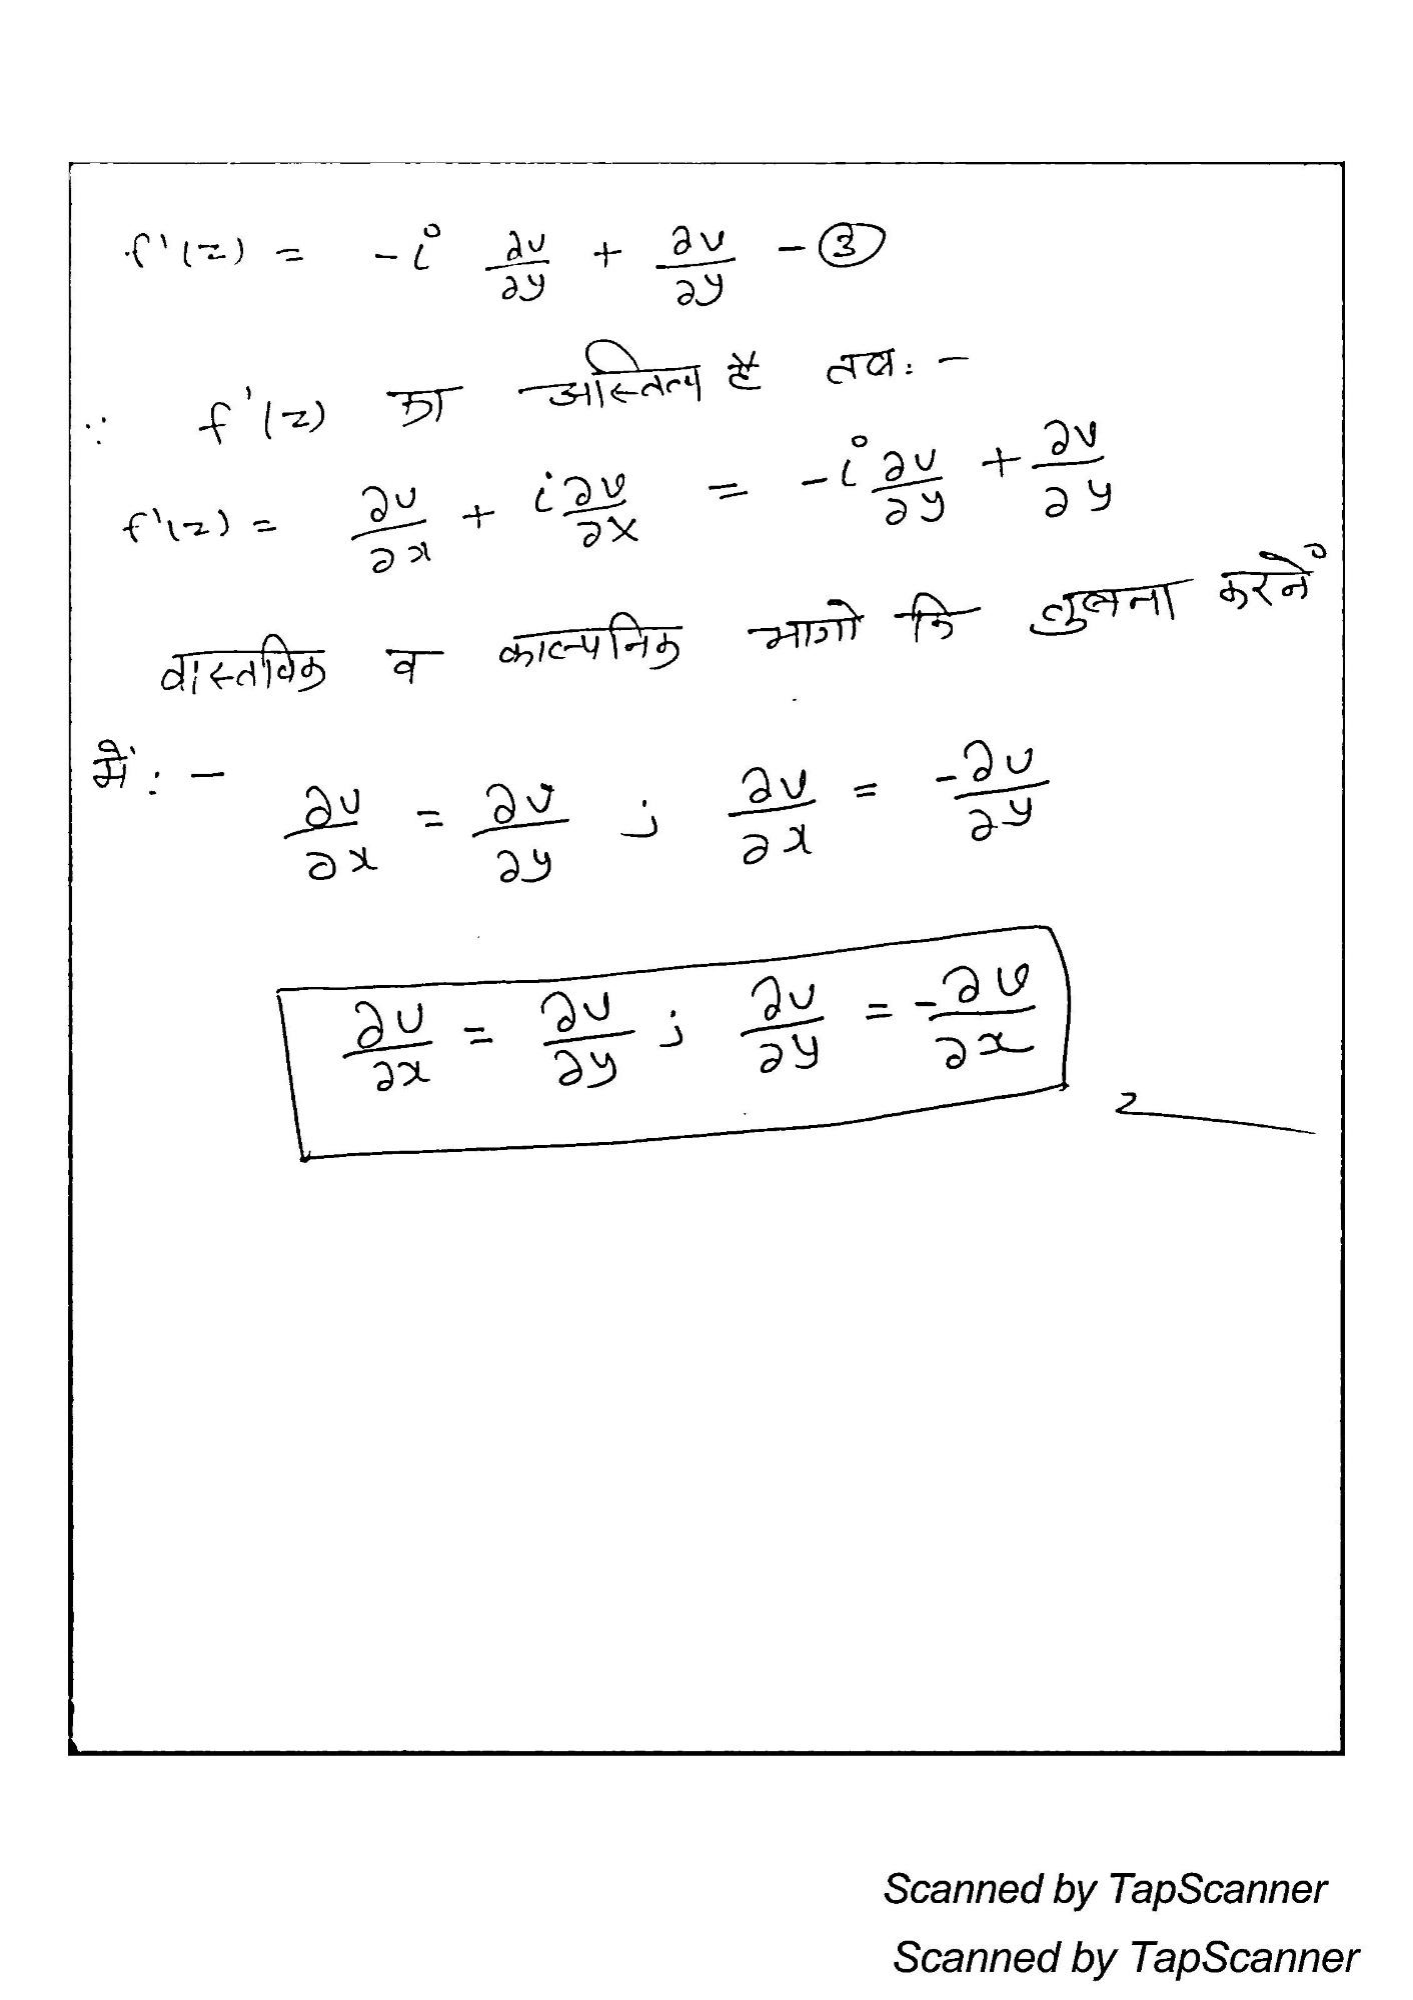 f'(z) = -i ∂u/∂y + ∂v/∂y - ③
∵ f'(z) का अस्तित्व है तब: -
f'(z) = ∂u/∂x + i ∂v/∂x = -i ∂u/∂y + ∂v/∂y
वास्तविक व काल्पनिक भागो कि तुलना करने
में: -
∂u/∂x = ∂v/∂y ; ∂v/∂x = -∂u/∂y
∂u/∂x = ∂v/∂y ; ∂u/∂y = -∂v/∂x
Scanned by TapScanner
Scanned by TapScanner